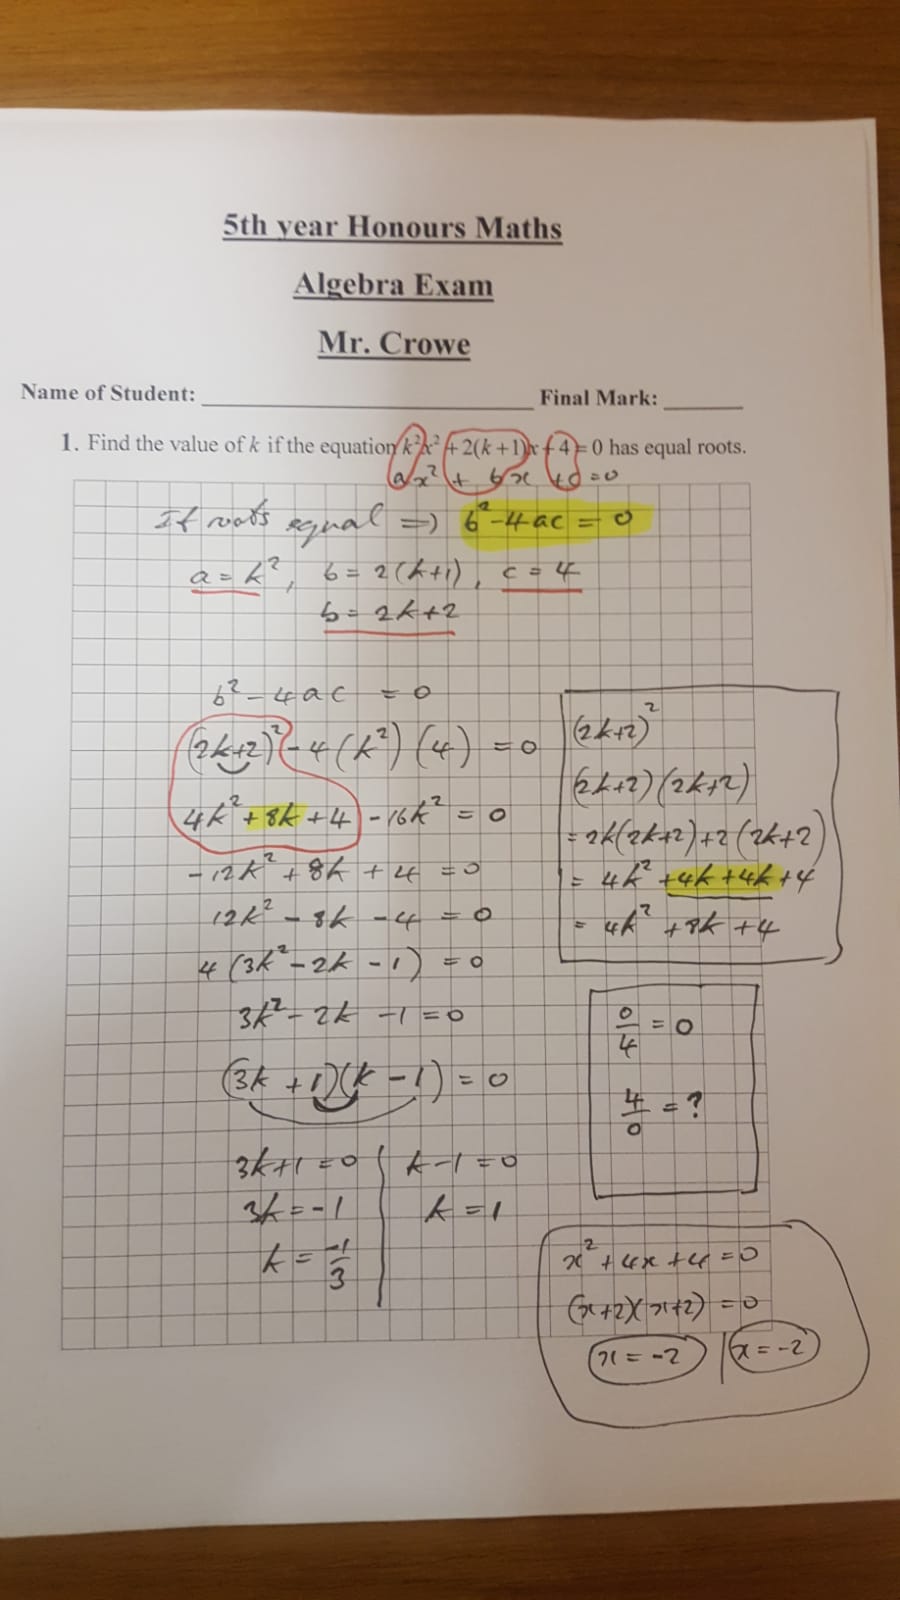 5th year Honours Maths
Algebra Exam
Mr. Crowe
Name of Student: Final Mark:
1. Find the value of k if the equation k²x² + 2(k+1)x + 4 = 0 has equal roots.
ax² + bx + c = 0
If roots equal => b² - 4ac = 0
a = k², b = 2(k+1), c = 4
b = 2k+2
b² - 4ac = 0
(2k+2)² - 4(k²)(4) = 0
4k² + 8k + 4 - 16k² = 0
-12k² + 8k + 4 = 0
12k² - 8k - 4 = 0
4(3k² - 2k - 1) = 0
3k² - 2k - 1 = 0
(3k + 1)(k - 1) = 0
3k+1 = 0 | k-1 = 0
3k = -1 k = 1
k = -1/3
(2k+2)²
(2k+2)(2k+2)
= 2k(2k+2)+2(2k+2)
= 4k² +4k+4k+4
= 4k² + 8k + 4
0/4 = 0
4/0 = ?
x² + 4x + 4 = 0
(x+2)(x+2) = 0
x = -2 | x = -2